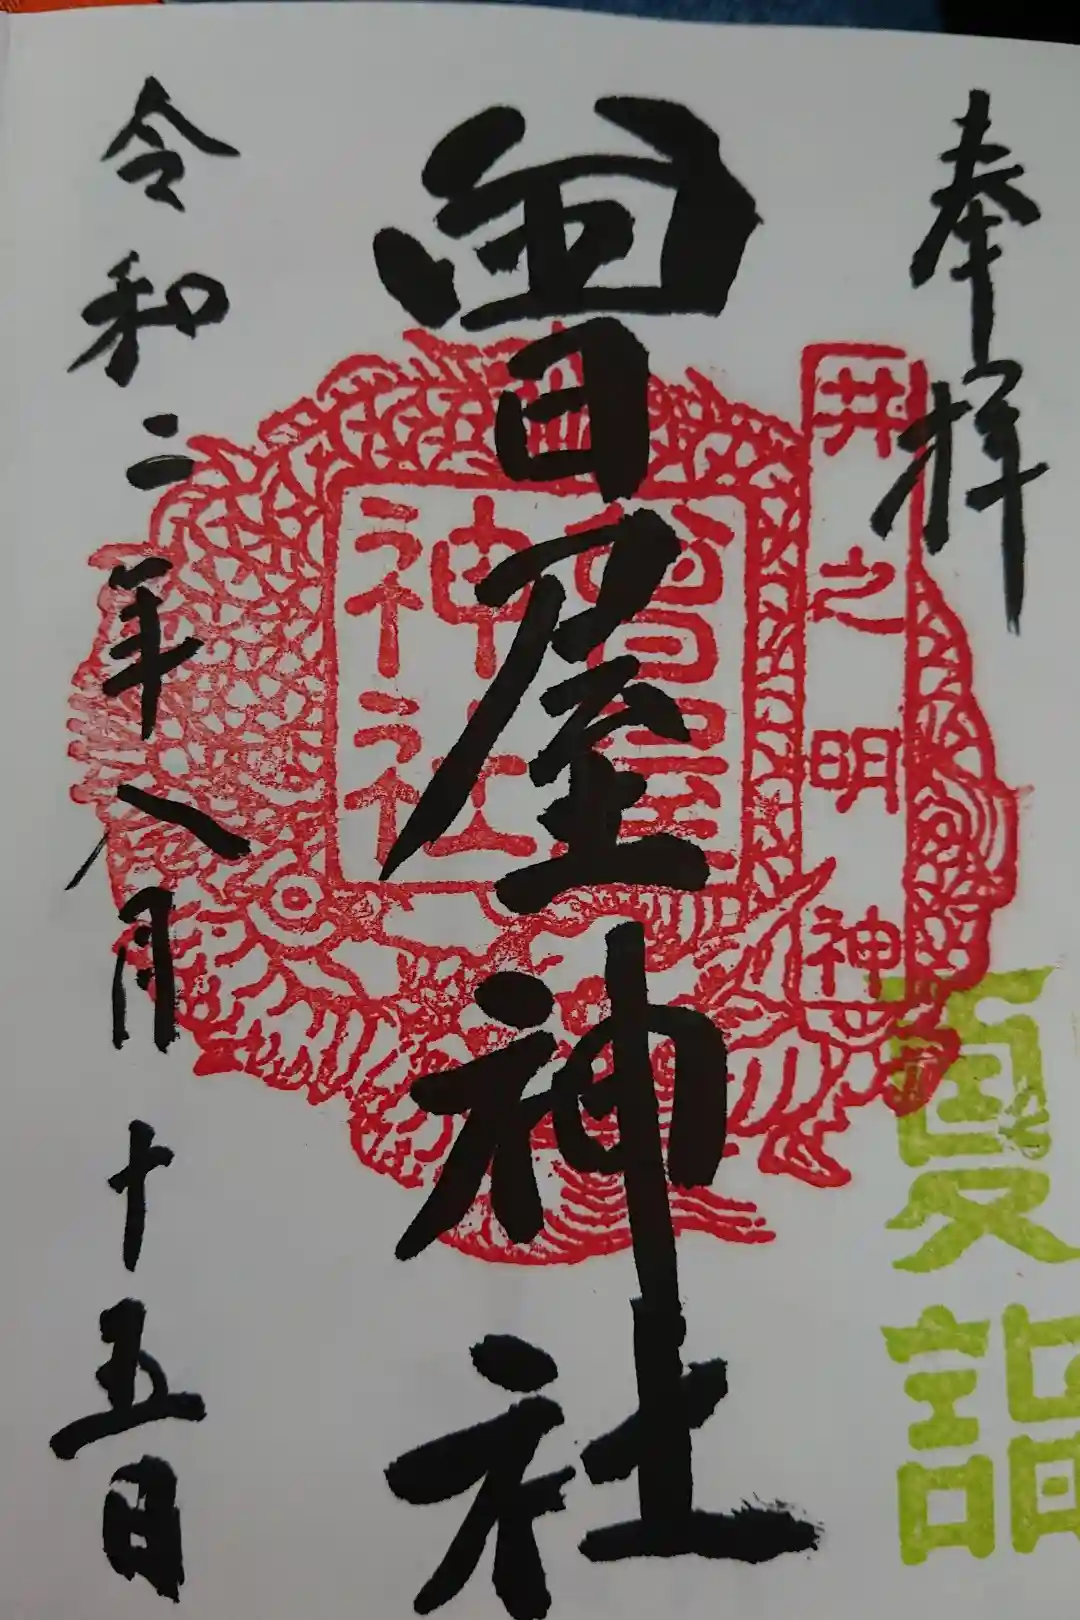 奉拝
井之明神
夏詣
曽屋神社
曽屋神社
令和二年八月十五日